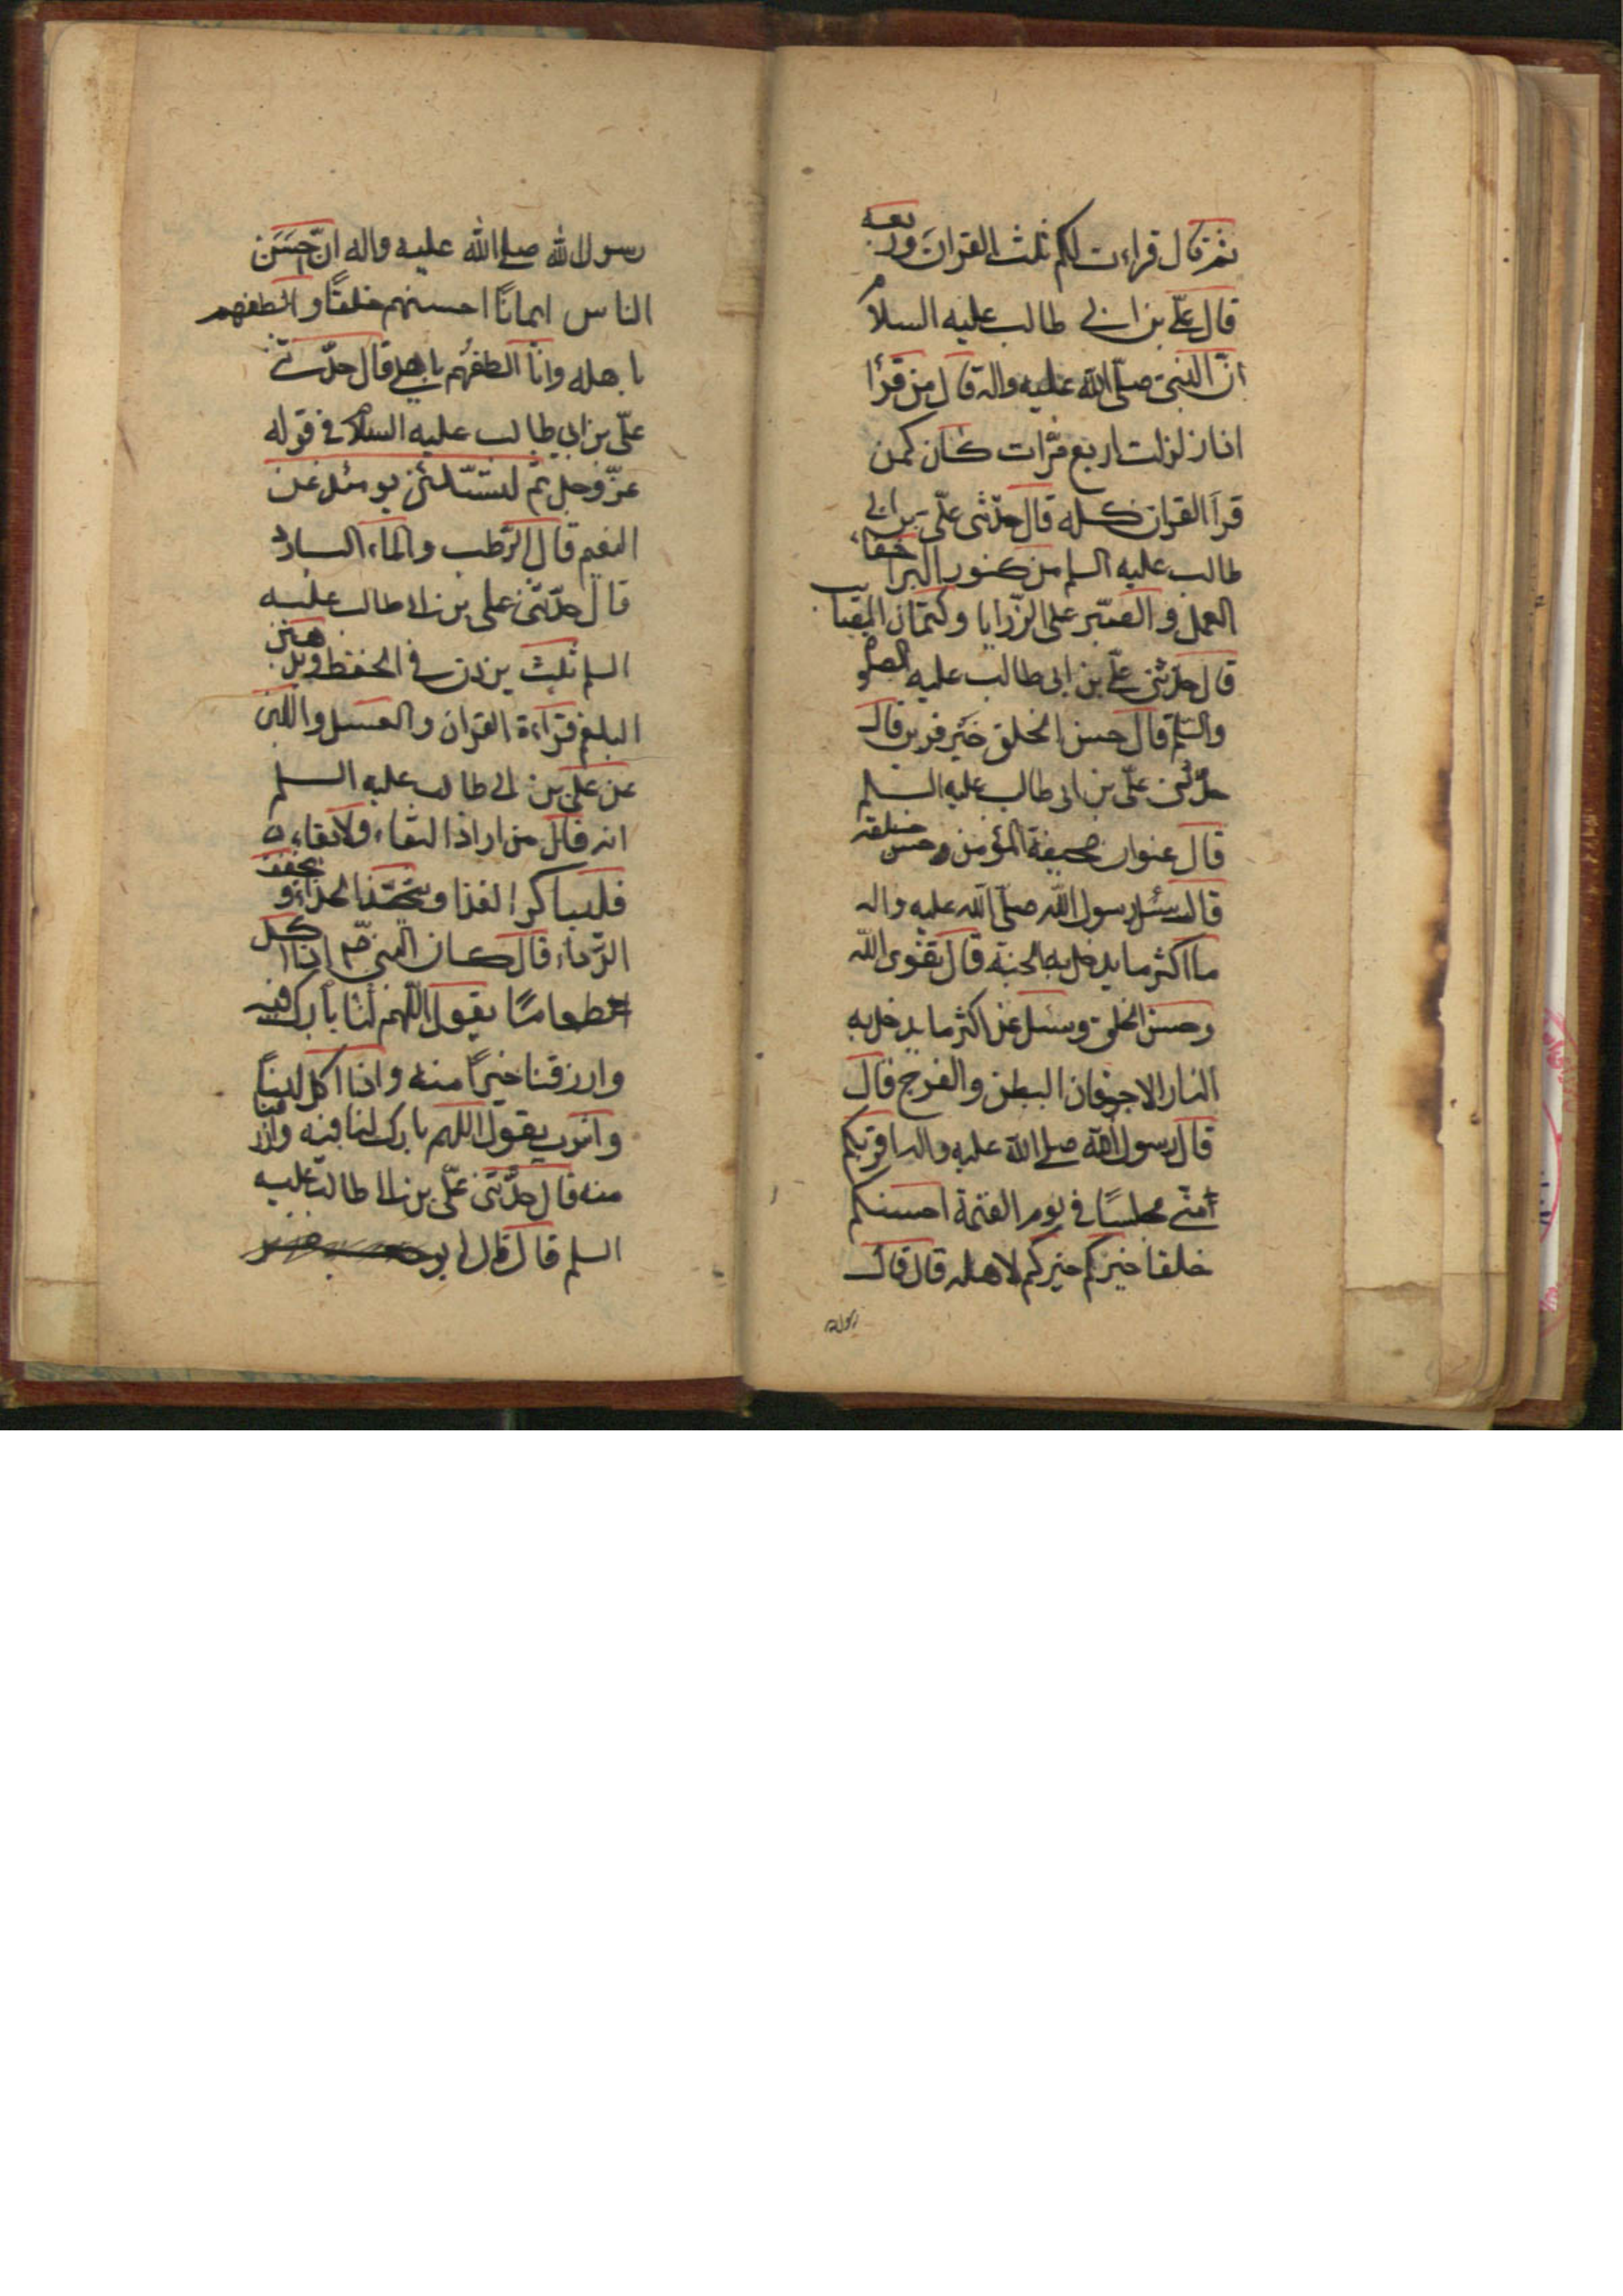 ثم قال قراءت لكم ثلث القران وربعه
قال علّي بن ابي طالب عليه السلام
انّ النبيّ صلّى الله عليه واله قال من قرأ
اذا زلزلت اربع مرّات كان كمن
قرأ القران كله قال حدّثنى علّى بن ابي
طالب عليه السلم من كنوز البرّ اخفاء
العمل و الصّبر على الرّزايا وكتمان المصايب
قال حدّثنى علّي بن ابى طالب عليه الصلو
والسّلم قال حسن الخلق خَيْر قرين قال
حدّثنى علّى بن ابى طالب عليه السلم
قال عنوان صحيفة المؤمن حسن خلقه
قال سئل رسول الله صلّى الله عليه واله
ما اكثر ما يدخل به الجنة قال تقوى الله
وحسن الخلق وسئل عن اكثر ما يدخل به
النار الاجوفان البطن والفرج قال
قال رسول الله صلى الله عليه واله اقربكم
منّي مجلسًا في يوم القيمة احسنكم
خلقا خيركم خيركم لاهله قال قال
رسول الله
رسول الله صلى الله عليه واله انّ احسَن
الناس ايمانًا احسنهم خلقًا و الطفهم
باهله وانا الطفهُم باهلي قال حدّثنى
علّى بن ابي طالب عليه السلام في قوله
عزّ وجل ثم لتسئلنّ يومئذ عن
النعيم قال الرّطب والماء البارد
قال حدّثنى على بن ابى طالب عليه
السلم ثلث يزدن في الحفظ ويذهبن
البلغم قراءة القران والعسل واللبن
عن على بن ابى طالب عليه السلم
انه قال من اراد البقاء ولا بقاء
فليباكر الغذا و الحذاء و يخفف
الرّداء قال كان النبي صم اذا اكل
طعامًا يقول اللّهم بارك لنا فيه
وارزقنا خيرًا منه واذا اكل لبنًا
و اشرب يقول اللهم بارك لنا فيه وارزقنا
منه قال حدّثنى علّى بن ابى طالب عليه
السلم قال قال ابو